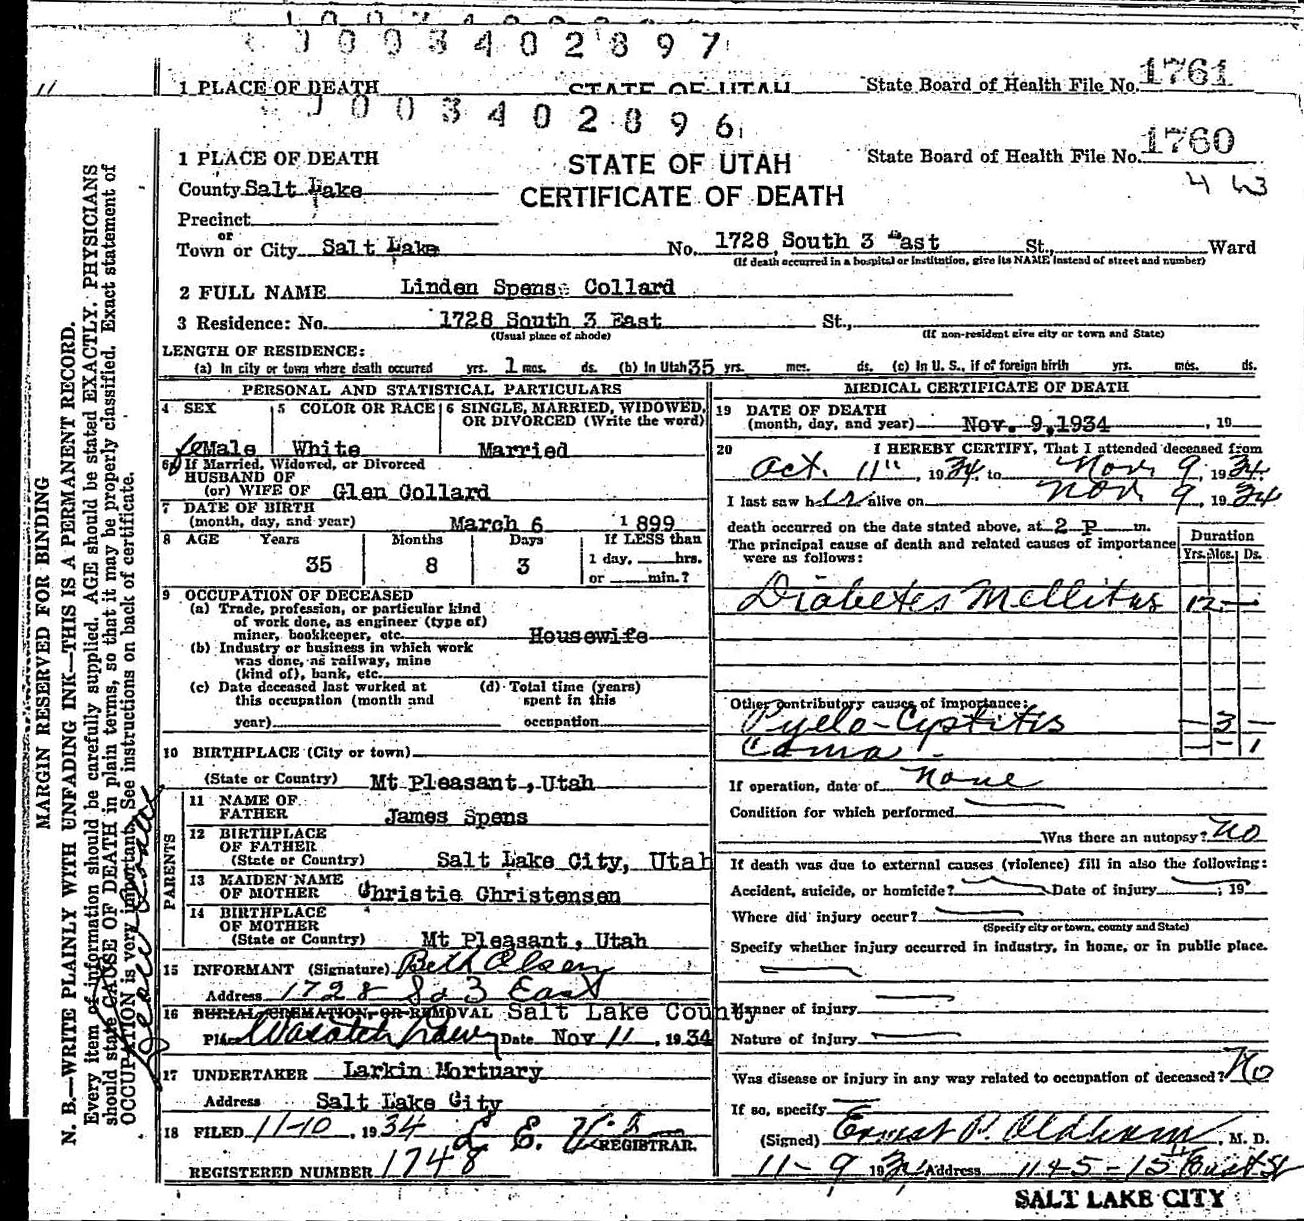 1003402897
11
1 PLACE OF DEATH STATE OF UTAH State Board of Health File No. 1761
1003402896
1 PLACE OF DEATH STATE OF UTAH State Board of Health File No. 1760
County Salt Lake CERTIFICATE OF DEATH
Precinct
or
Town or City Salt Lake No. 1728 South 3 East St., Ward
(If death occurred in a hospital or institution, give its NAME instead of street and number)
2 FULL NAME Linden Spens Collard
3 Residence: No. 1728 South 3 East St.,
(Usual place of abode) (If non-resident give city or town and State)
LENGTH OF RESIDENCE:
(a) In city or town where death occurred yrs. 1 mos. ds. (b) In Utah 35 yrs. mos. ds. (c) In U. S., if of foreign birth yrs. mos. ds.
PERSONAL AND STATISTICAL PARTICULARS
4 SEX 5 COLOR OR RACE 6 SINGLE, MARRIED, WIDOWED, OR DIVORCED (Write the word)
feMale White Married
If Married, Widowed, or Divorced
HUSBAND OF
(or) WIFE OF Glen Collard
7 DATE OF BIRTH
(month, day, and year) March 6 1899
8 AGE Years Months Days If LESS than
35 8 3 1 day, hrs.
or min.?
9 OCCUPATION OF DECEASED
(a) Trade, profession, or particular kind
of work done, as engineer (type of)
miner, bookkeeper, etc. Housewife
(b) Industry or business in which work
was done, as railway, mine
(kind of), bank, etc.
(c) Date deceased last worked at (d) Total time (years)
this occupation (month and spent in this
year) occupation
10 BIRTHPLACE (City or town)
(State or Country) Mt Pleasant, Utah
PARENTS
11 NAME OF
FATHER James Spens
12 BIRTHPLACE
OF FATHER
(State or Country) Salt Lake City, Utah
13 MAIDEN NAME
OF MOTHER Christie Christensen
14 BIRTHPLACE
OF MOTHER
(State or Country) Mt Pleasant, Utah
15 INFORMANT (Signature) Beth Olsen
Address 1728 So 3 East
16 BURIAL, CREMATION, OR REMOVAL Salt Lake County
Place Wasatch Lawn Date Nov 11, 1934
17 UNDERTAKER Larkin Mortuary
Address Salt Lake City
18 FILED 11-10, 1934
REGISTRAR.
REGISTERED NUMBER 1748
MEDICAL CERTIFICATE OF DEATH
19 DATE OF DEATH
(month, day, and year) Nov. 9, 1934, 19
20 I HEREBY CERTIFY, That I attended deceased from
Oct. 11", 1934, to Nov 9, 1934.
I last saw her alive on Nov 9, 1934
death occurred on the date stated above, at 2 P m.
The principal cause of death and related causes of importance
were as follows:
Duration
Yrs. Mos. Ds.
Diabetes Mellitus 12 —
Other contributory causes of importance:
Pyelo-Cystitis — 3 —
Coma — - 1
If operation, date of None
Condition for which performed
Was there an autopsy? No
If death was due to external causes (violence) fill in also the following:
Accident, suicide, or homicide? Date of injury , 19
Where did injury occur?
(Specify city or town, county and State)
Specify whether injury occurred in industry, in home, or in public place.
Manner of injury
Nature of injury
Was disease or injury in any way related to occupation of deceased? No
If so, specify
(Signed) Ernest P. Oldham, M. D.
11-9 1934 Address 1145-15" East St
SALT LAKE CITY
MARGIN RESERVED FOR BINDING
N. B.—WRITE PLAINLY WITH UNFADING INK—THIS IS A PERMANENT RECORD.
Every item of information should be carefully supplied. AGE should be stated EXACTLY. PHYSICIANS
should state CAUSE OF DEATH in plain terms, so that it may be properly classified. Exact statement of
OCCUPATION is very important. See instructions on back of certificate.